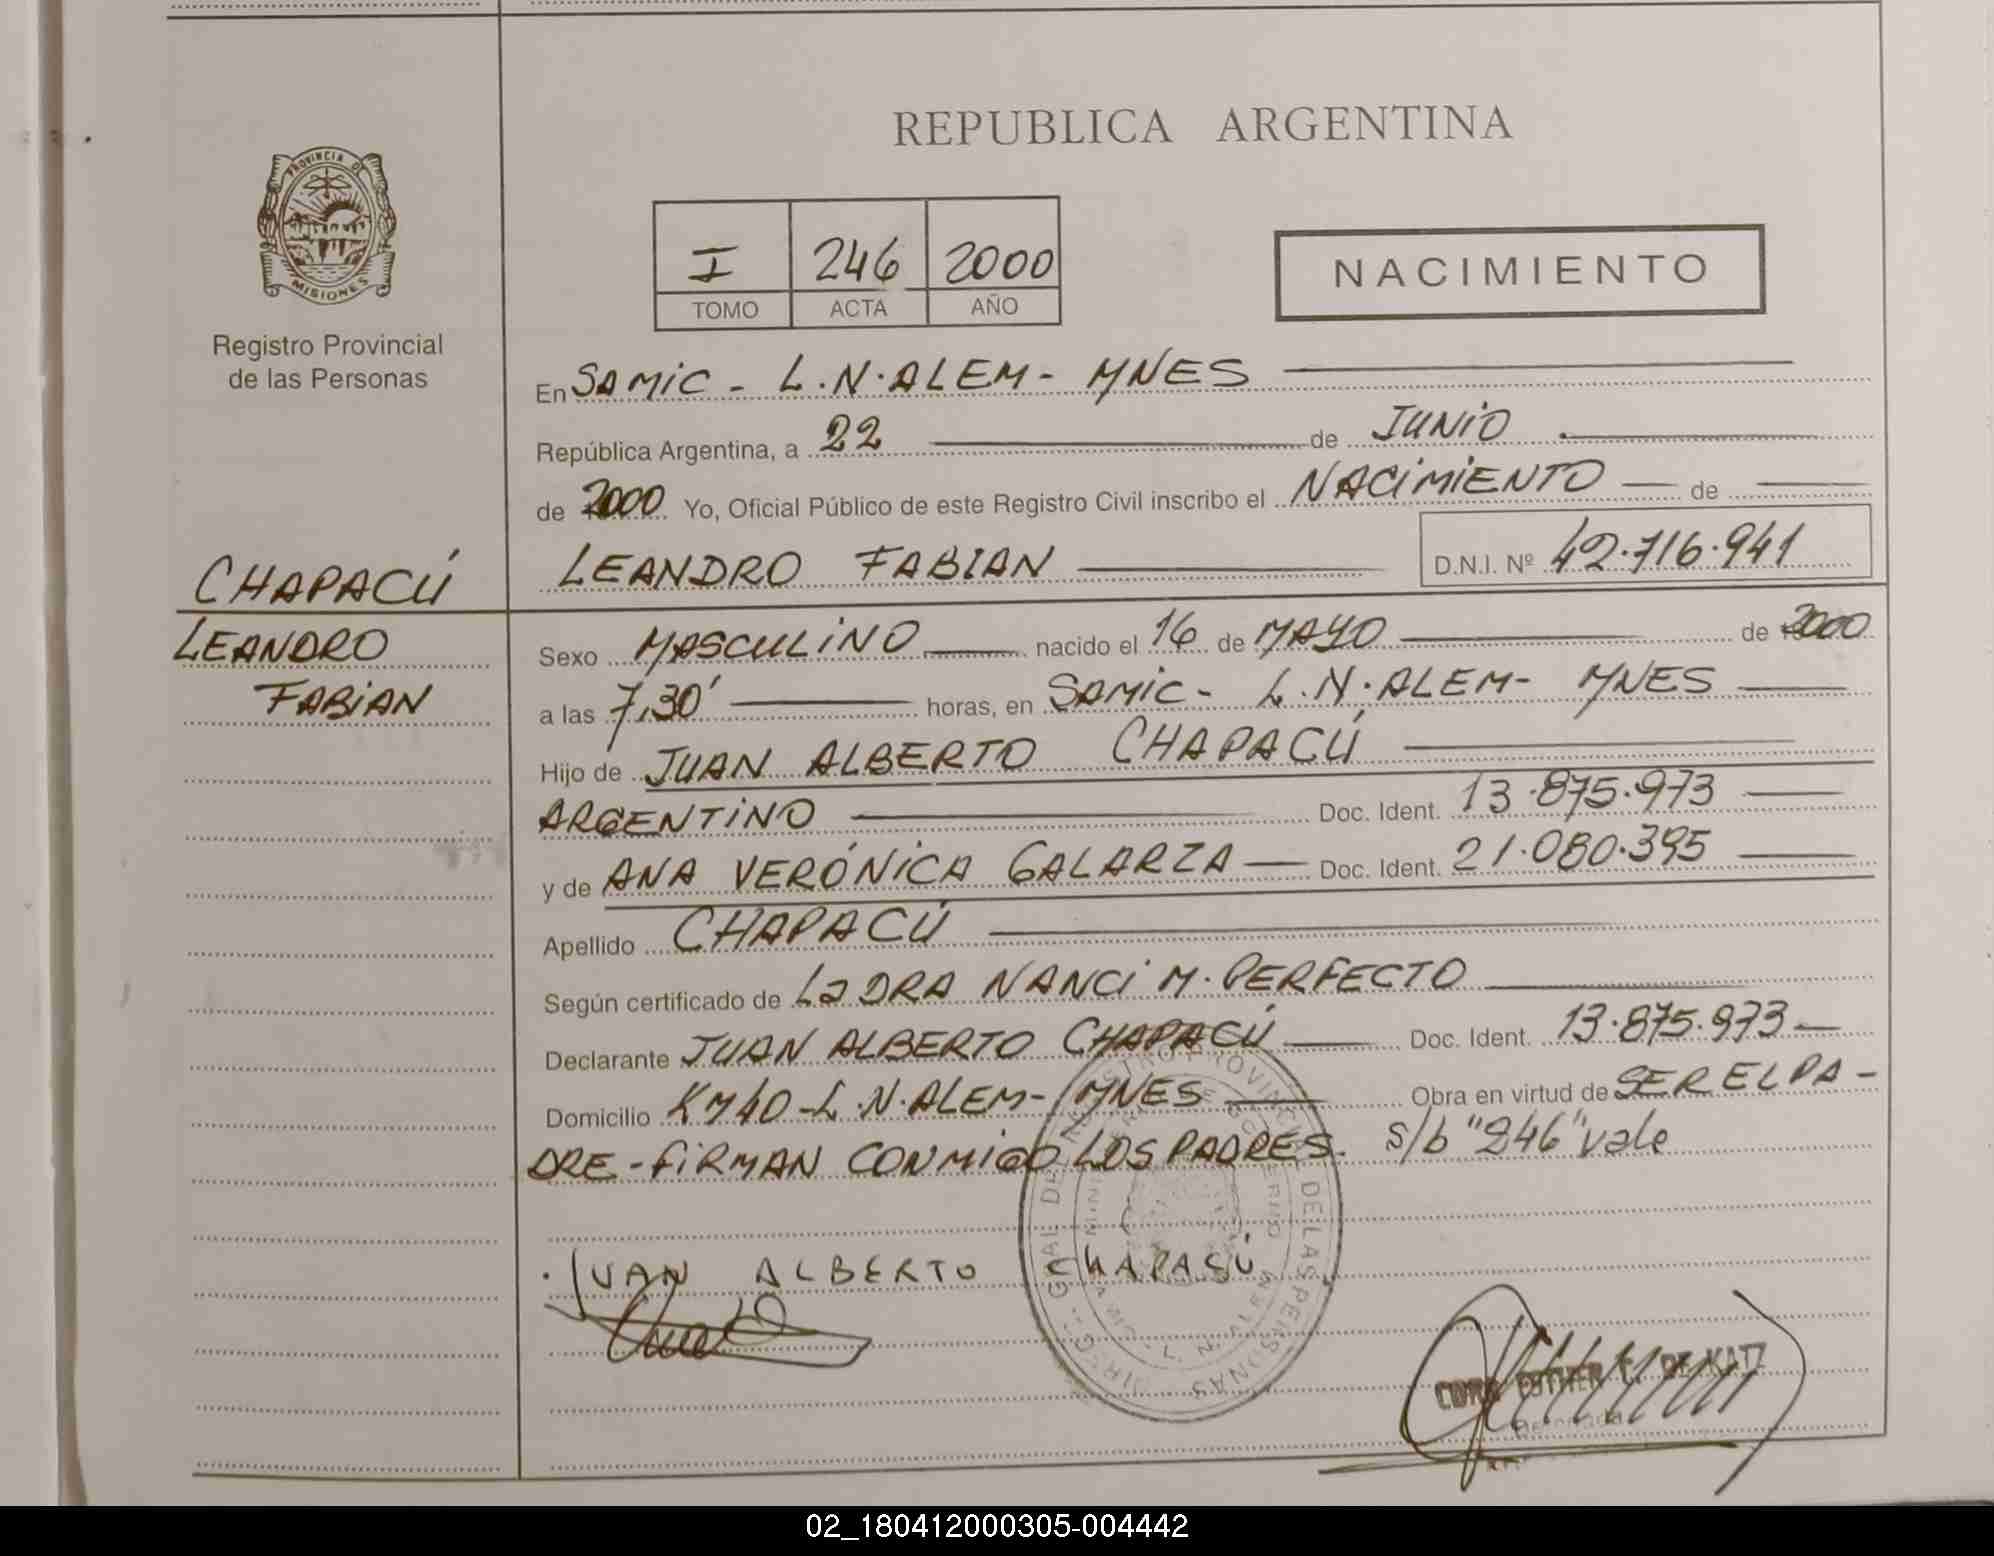 REPUBLICA ARGENTINA
PROVINCIA DE
MISIONES
Registro Provincial
de las Personas
I 246 2000
TOMO ACTA AÑO
NACIMIENTO
En SAMIC - L.N.ALEM - MNES
República Argentina, a 22 de JUNIO
de 2000 Yo, Oficial Público de este Registro Civil inscribo el NACIMIENTO de
LEANDRO FABIAN D.N.I. Nº 42.716.941
CHAPACÚ
LEANDRO
FABIAN
Sexo MASCULINO nacido el 16 de MAYO de 2000
a las 7,30' horas, en SAMIC - L.N.ALEM - MNES
Hijo de JUAN ALBERTO CHAPACÚ
ARGENTINO Doc. Ident. 13.875.973
y de ANA VERÓNICA GALARZA Doc. Ident. 21.080.395
Apellido CHAPACÚ
Según certificado de La DRA NANCI M. PERFECTO
Declarante JUAN ALBERTO CHAPACÚ Doc. Ident. 13.875.973
Domicilio KM40 - L.N.ALEM - MNES Obra en virtud de SER EL PA-
DRE - FIRMAN CONMIGO LOS PADRES. S/b "246" vale
JUAN ALBERTO CHAPASÚ
ESTHER DE KATZ
02_180412000305-004442